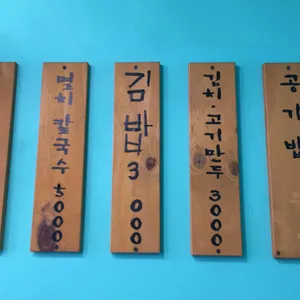 멸치 칼국수 5000
김밥 3000
김치·고기만두 3000
공기밥